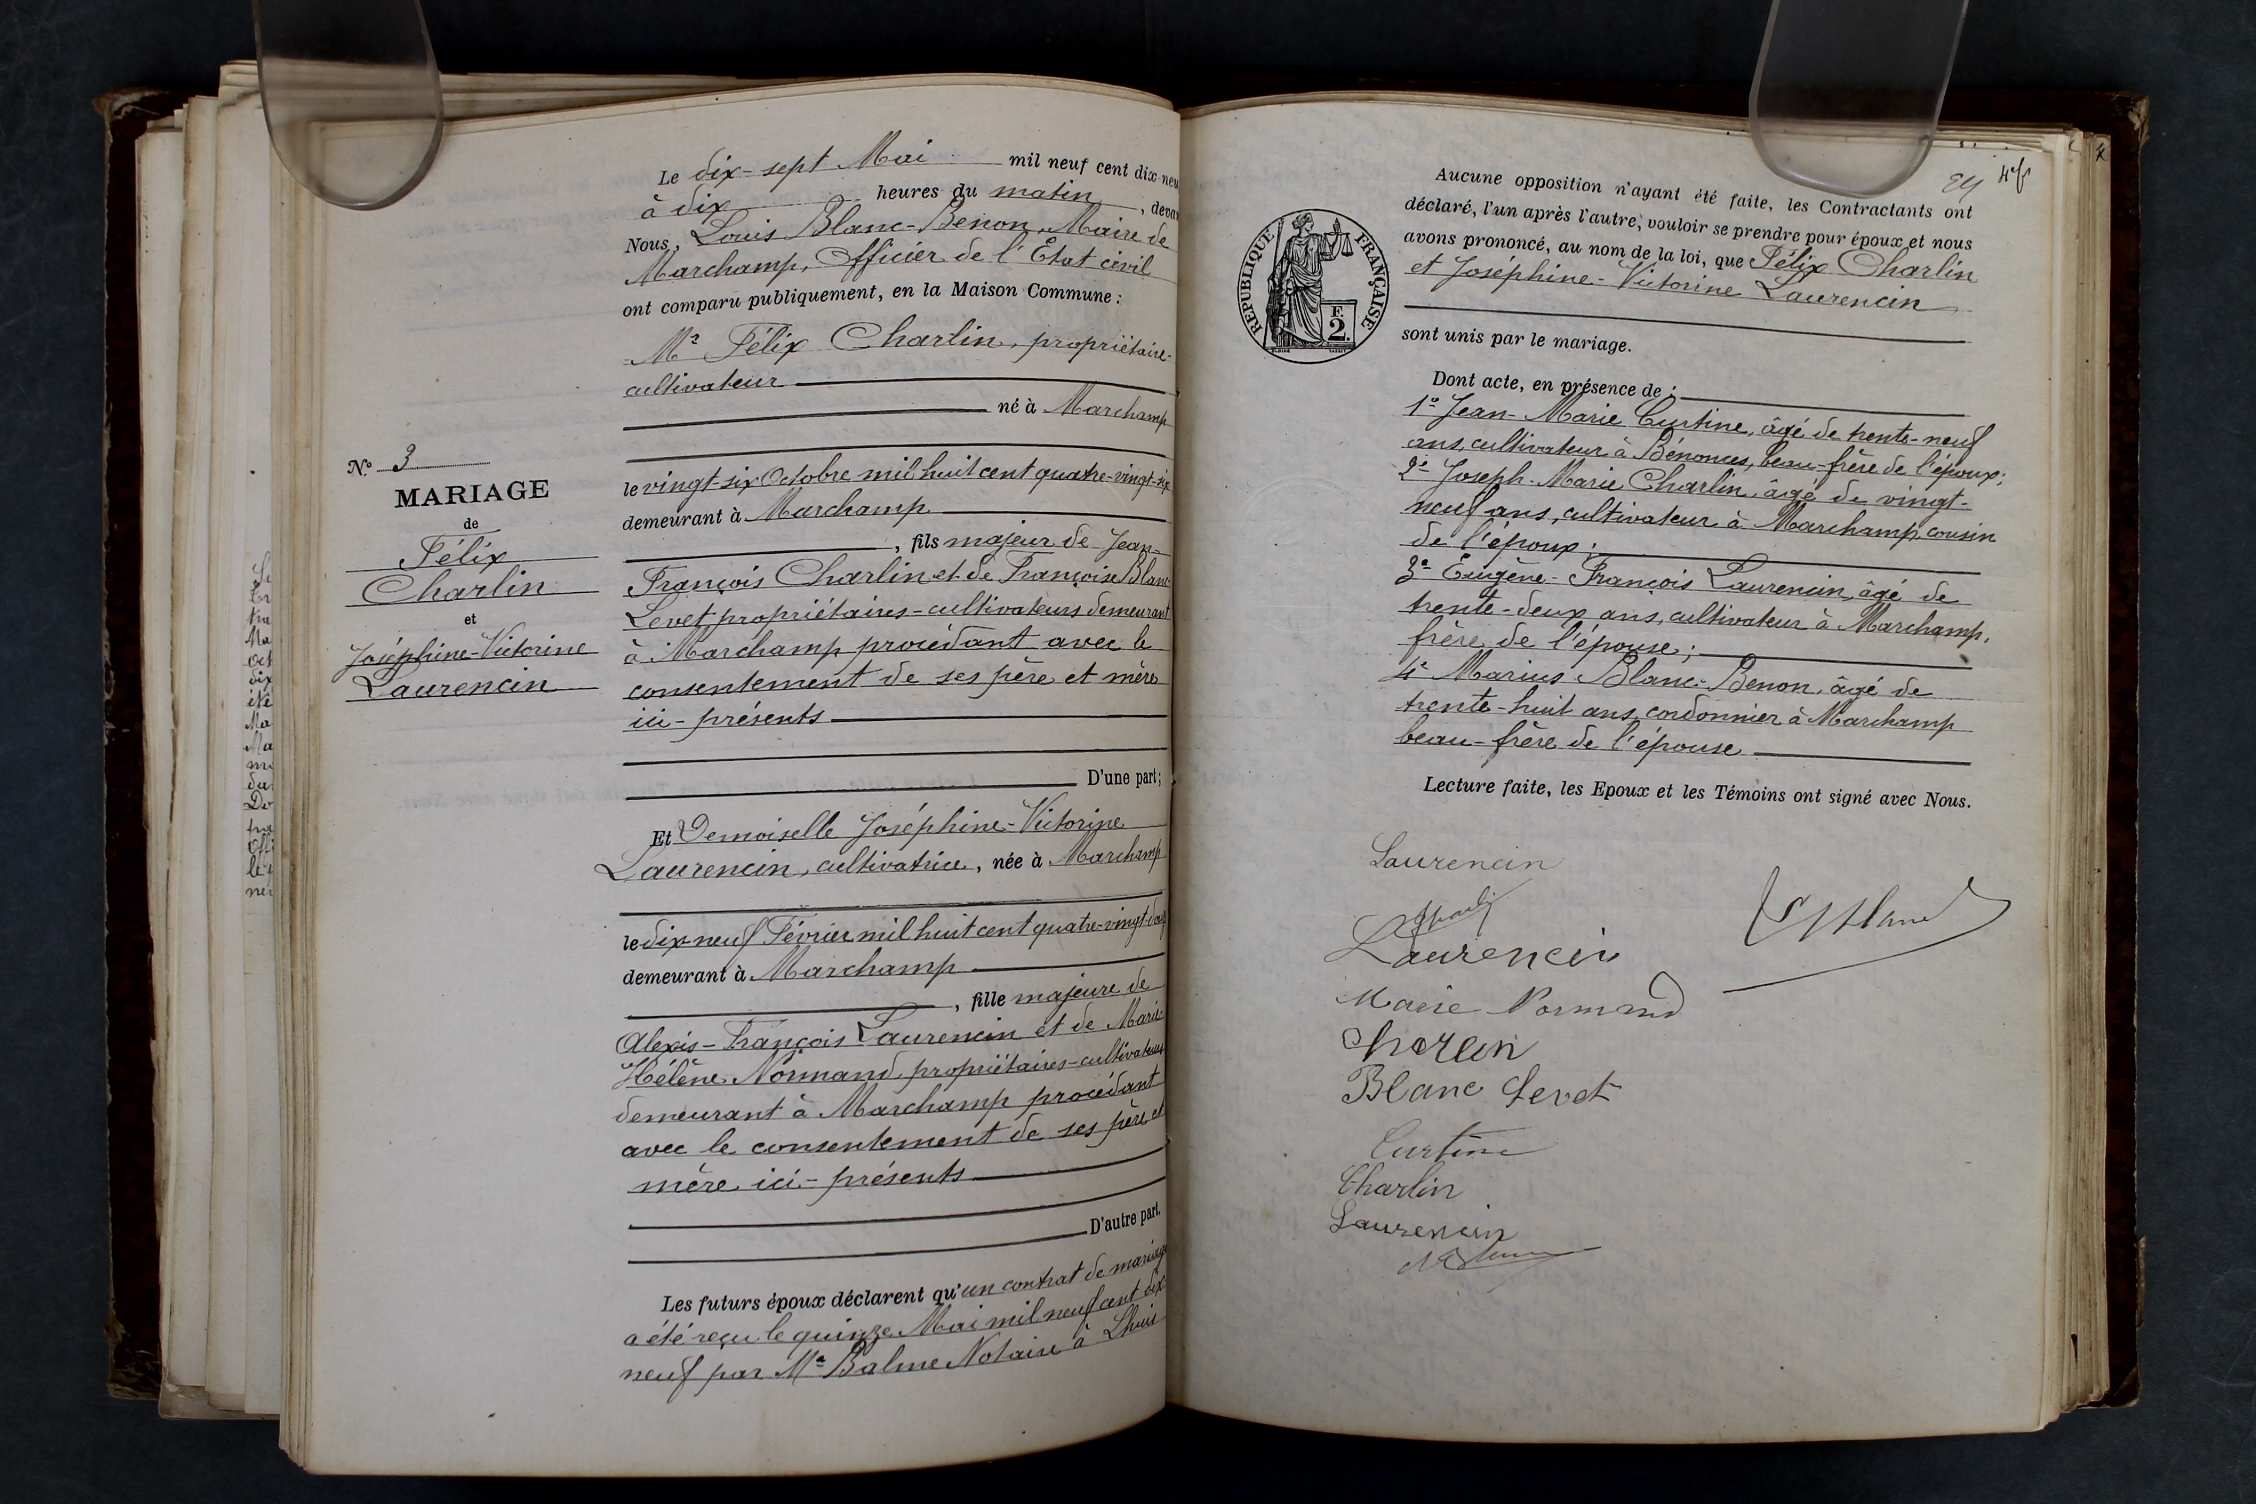 Le dix-sept Mai mil neuf cent dix-neu
à dix heures du matin, deva
Nous, Louis Blanc-Benon, Maire de
Marchamp, Officier de l'Etat civil
ont comparu publiquement, en la Maison Commune :
Mr Félix Charlin, propriétaire-
cultivateur
né à Marchamp
le vingt-six Octobre mil huit cent quatre-vingt-six
demeurant à Marchamp
, fils majeur de Jean-
François Charlin et de Françoise Blanc-
Levet propriétaires-cultivateurs demeurant
à Marchamp procédant avec le
consentement de ses père et mère
ici-présents
D'une part;
Nº 3
MARIAGE
de
Félix
Charlin
et
Joséphine-Victorine
Laurencin
Et Demoiselle Joséphine-Victorine
Laurencin, cultivatrice, née à Marchamp
le dix-neuf Février mil huit cent quatre-vingt-
demeurant à Marchamp
, fille majeure de
Alexis-François Laurencin et de Marie
Hélène Normand, propriétaires-cultivateurs
demeurant à Marchamp procédant
avec le consentement de ses père et
mère ici-présents
D'autre part.
Les futurs époux déclarent qu'un contrat de mariage
a été reçu le quinze Mai mil neuf cent dix
neuf par Me Balme Notaire à Lhuis
24 4f
Aucune opposition n'ayant été faite, les Contractants ont
déclaré, l'un après l'autre, vouloir se prendre pour époux et nous
avons prononcé, au nom de la loi, que Félix Charlin
et Joséphine-Victorine Laurencin
sont unis par le mariage.
REPUBLIQUE FRANÇAISE
F.
2.
Dont acte, en présence de :
1º Jean-Marie Curtine, âgé de trente-neuf
ans, cultivateur à Bénonces, beau-frère de l'époux;
2º Joseph-Marie Charlin, âgé de vingt-
neuf ans, cultivateur à Marchamp, cousin
de l'époux;
3º Eugène-François Laurencin, âgé de
trente-deux ans, cultivateur à Marchamp,
frère de l'épouse;
4º Marius Blanc-Benon, âgé de
trente-huit ans, cordonnier à Marchamp
beau-frère de l'épouse
Lecture faite, les Epoux et les Témoins ont signé avec Nous.
Laurencin
Laurencin
Marie Normand
Blanc Levet
Curtine
Charlin
Laurencin